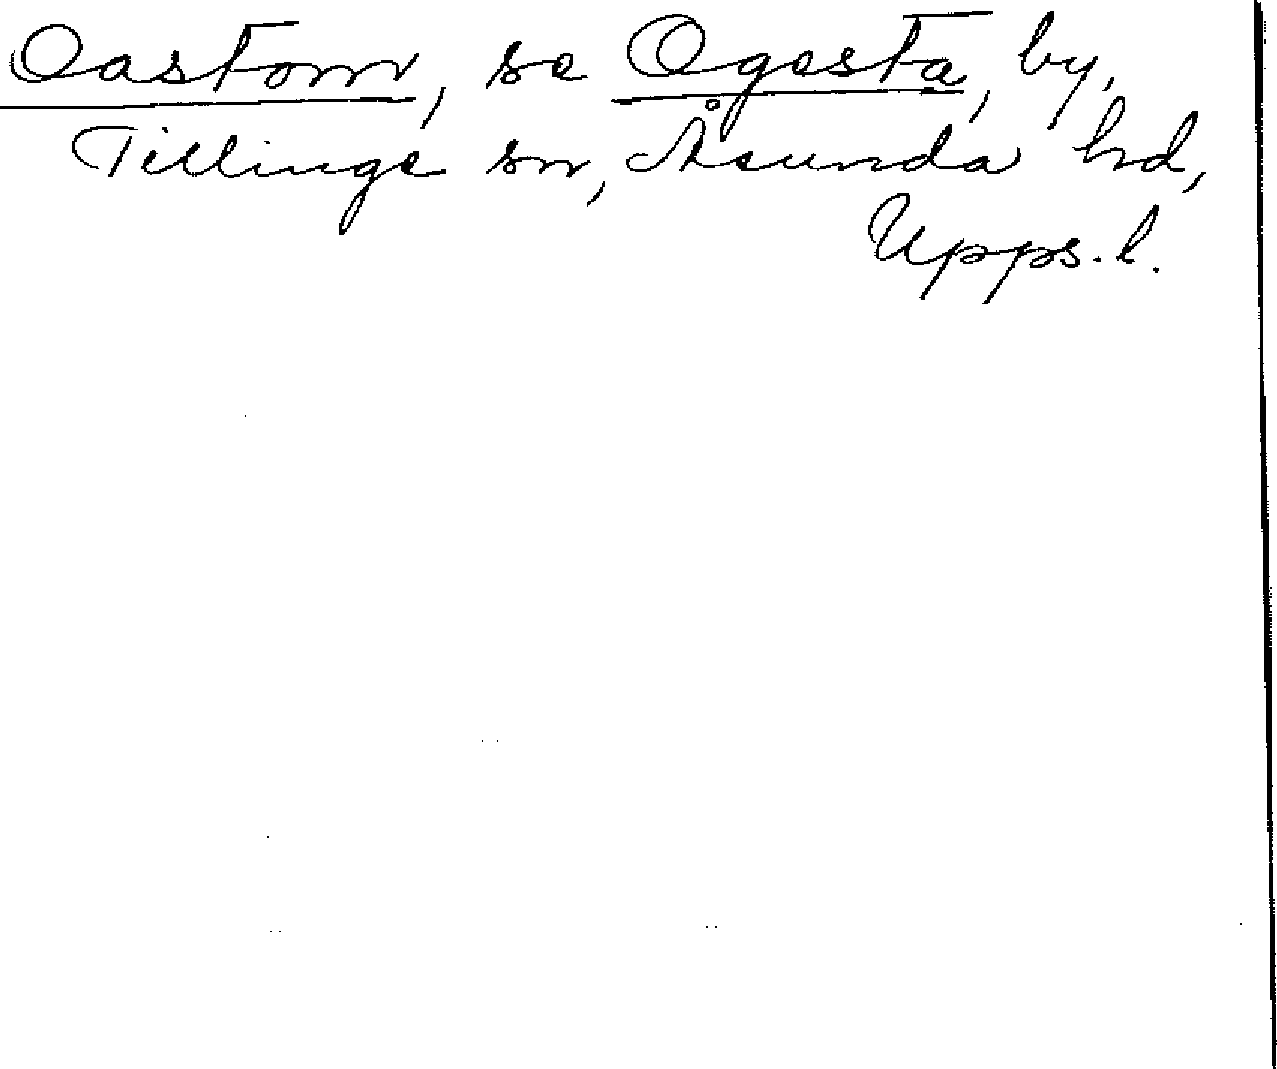 Oastom, se Ogesta, by,
Tillinge sn, Åsunda hd,
Upps. l.